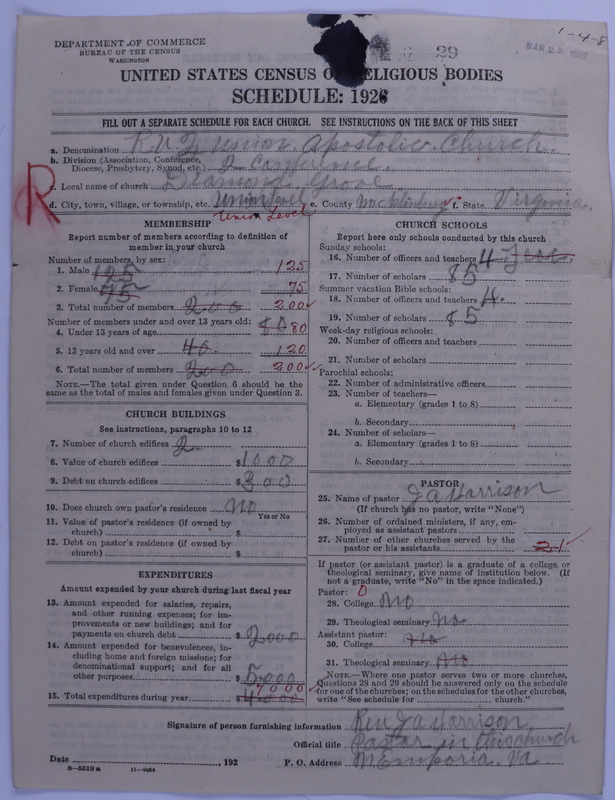 1-4-8
DEPARTMENT OF COMMERCE
BUREAU OF THE CENSUS
WASHINGTON
29
MAR 24
UNITED STATES CENSUS OF RELIGIOUS BODIES
SCHEDULE: 1926
FILL OUT A SEPARATE SCHEDULE FOR EACH CHURCH. SEE INSTRUCTIONS ON THE BACK OF THIS SHEET
a. Denomination Union Apostolic Church.
b. Division (Association, Conference, Diocese, Presbytery, Synod, etc.) Conference.
R
c. Local name of church Diamond Grove
d. City, town, village, or township, etc. Union Level e. County Mecklenburg f. State Virginia.
Union Level
MEMBERSHIP
Report number of members according to definition of member in your church
Number of members, by sex:
1. Male 125 125
2. Female 75 75
3. Total number of members 200 200
Number of members under and over 13 years old:
4. Under 13 years of age 80 80
5. 13 years old and over 40 120
6. Total number of members 200 200
NOTE.—The total given under Question 6 should be the same as the total of males and females given under Question 3.
CHURCH BUILDINGS
See instructions, paragraphs 10 to 12
7. Number of church edifices 2
8. Value of church edifices $1000
9. Debt on church edifices $300
10. Does church own pastor's residence No
Yes or No
11. Value of pastor's residence (if owned by church) $
12. Debt on pastor's residence (if owned by church) $
EXPENDITURES
Amount expended by your church during last fiscal year
13. Amount expended for salaries, repairs, and other running expenses; for improvements or new buildings; and for payments on church debt $2000
14. Amount expended for benevolences, including home and foreign missions; for denominational support; and for all other purposes $5000
7000
15. Total expenditures during year $
CHURCH SCHOOLS
Report here only schools conducted by this church
Sunday schools:
16. Number of officers and teachers 4
17. Number of scholars 85
Summer vacation Bible schools:
18. Number of officers and teachers 4.
19. Number of scholars 85
Week-day religious schools:
20. Number of officers and teachers
21. Number of scholars
Parochial schools:
22. Number of administrative officers
23. Number of teachers—
a. Elementary (grades 1 to 8)
b. Secondary
24. Number of scholars—
a. Elementary (grades 1 to 8)
b. Secondary
PASTOR
25. Name of pastor J A Harrison
(If church has no pastor, write "None")
26. Number of ordained ministers, if any, employed as assistant pastors
27. Number of other churches served by the pastor or his assistants
If pastor (or assistant pastor) is a graduate of a college or theological seminary, give name of institution below. (If not a graduate, write "No" in the space indicated.)
Pastor: 0
28. College No
29. Theological seminary No
Assistant pastor:
30. College No
31. Theological seminary No
NOTE.—Where one pastor serves two or more churches, Questions 28 and 29 should be answered only on the schedule for one of the churches; on the schedules for the other churches, write "See schedule for church."
Signature of person furnishing information Rev J A Harrison
Official title Pastor in this church
Date , 192 P. O. Address Emporia. Va
8-5518a 11-9054